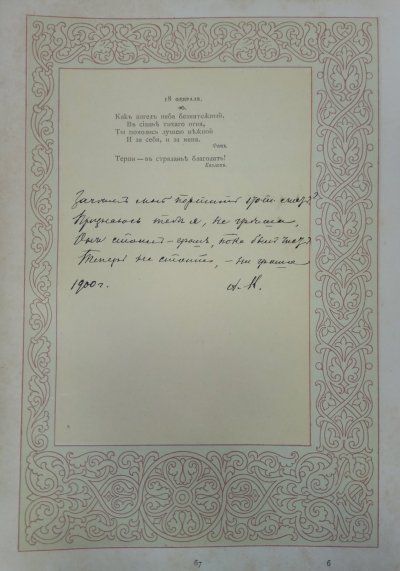 18 апрѣля.
Какъ ангелъ неба безмятежный,
Въ сіяньѣ тихаго огня,
Ты помолись душою нѣжной
И за себя, и за меня.
Фетъ.
Терпи — въ страданьѣ благодать!
Козловъ.
Зачѣмъ мнѣ портить этотъ листъ?
Признаюсь тебѣ я, не грѣша,
Онъ стоилъ – грошъ, пока былъ чистъ
Теперь не стоитъ, – ни гроша
1900 г. А. К.
67 6